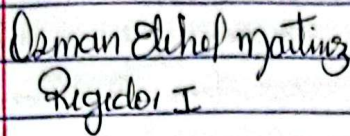 Osman Ethel Martinez
Regidor I